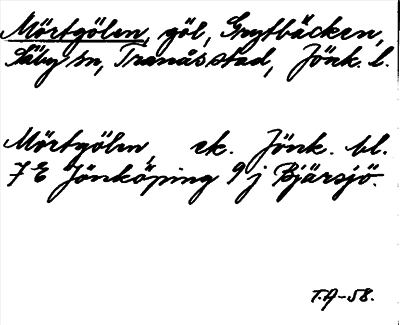 Mörtgölen, göl, Grytbäcken,
Säby sn, Tranås stad, Jönk. l.
Mörtgölen, ek. Jönk. bl.
7 E Jönköping 9 j Bjärsjö.
T.A-58.